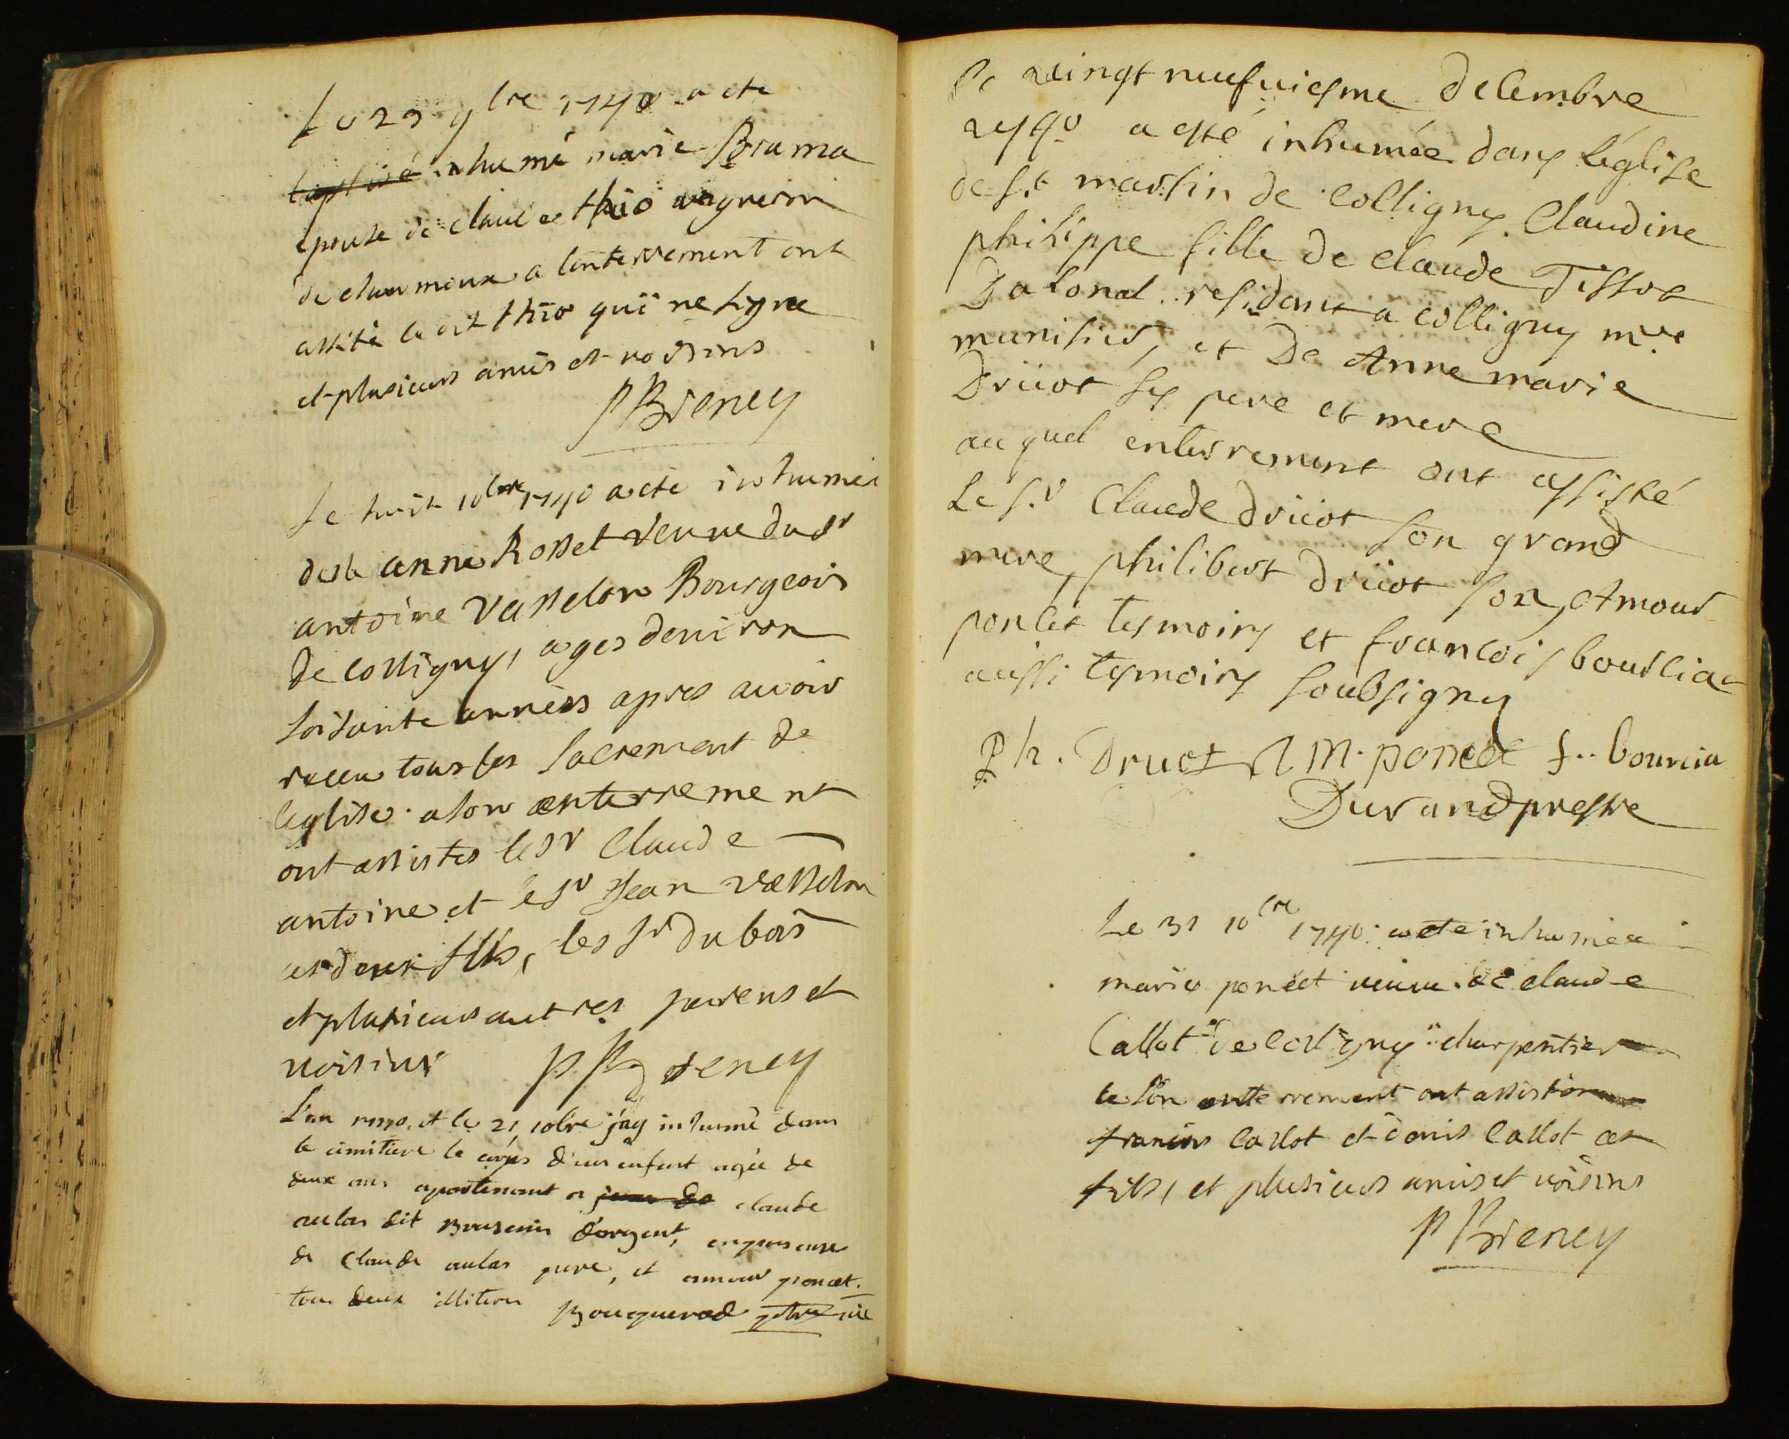 Le 29 9bre 1740 a ete
baptisé inhumé marie Bruma
epouse de claude thio vigneron
de charmoux a lenterrement ont
assité ledit thio qui ne signe
et plusieurs amis et voisins
P Bieney
Le huit 10bre 1740 a ete inhumée
dele anne Rosset veuve du Sr
antoine vasselon Bourgeois
de colligny, ages denviron
soisante années apres avoir
receu tous les sacrement de
leglise. a son enterrement
ont assistes le Sr Claude
antoine et le Sr Jean vasselon
ses deux fils, les Sr dubois
et plusieurs autres parens et
voisins P Bieney
L'an 1740, et le 21 10bre j'ay inhumé dans
le cimitiere le corps d'un enfant agée de
deux ans apartenant a claude
aulas dit d'orgent, en presence
de Claude aulas pere, et amour poncet.
tous deux illitere Bouquerod ptre
le vingt neufviesme decembre
1740 a esté inhumée dans léglise
de st martin de colligny Claudine
philippe fille de claude Tissot
Dalonal residant a colligny mre
munisier, et De Anne marie
Drüot ses pere et mere
au quel enterrement ont assisté
Le sr Claude drüot son grand
mere, philibert drüot son, Amour
poncet tesmoins et francois bourcia
aussi tesmoins soubsigny
Ph. Druot A M. poncet f.. bourcia
Durand prestre
Le 31 10bre 1740 a ete inhumée
marie poncet veuve de claude
Callot de colligny charpentier
a son enterrement ont assisté
francois callot et denis callot ses
fils, et plusieurs amis et voisins
P Bieney